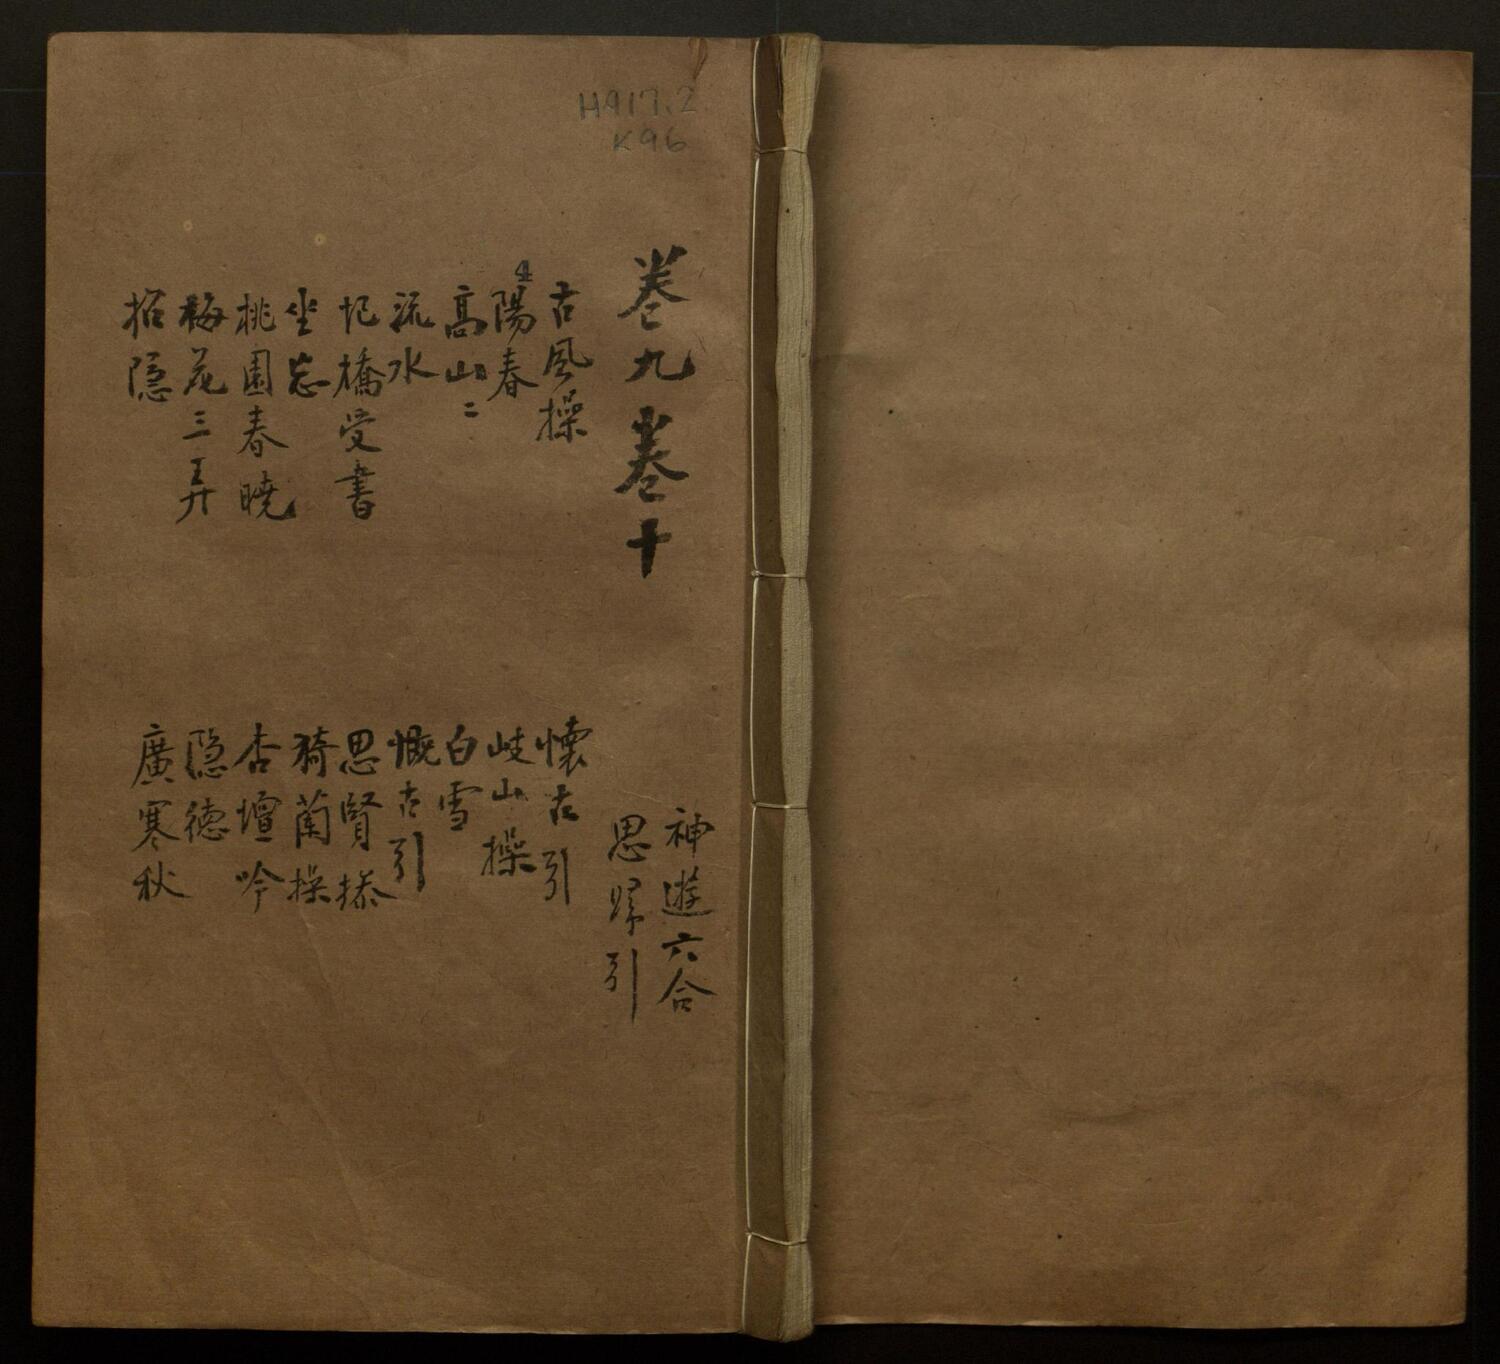 H917.2
K96
卷九卷十
古風操
4
陽春
高山二
流水
圯橋受書
坐忘
桃園春曉
梅花三弄
招隱
神遊六合
思歸引
懷古引
岐山操
白雪
慨古引
思賢操
猗蘭操
杏壇吟
隱德
廣寒秋